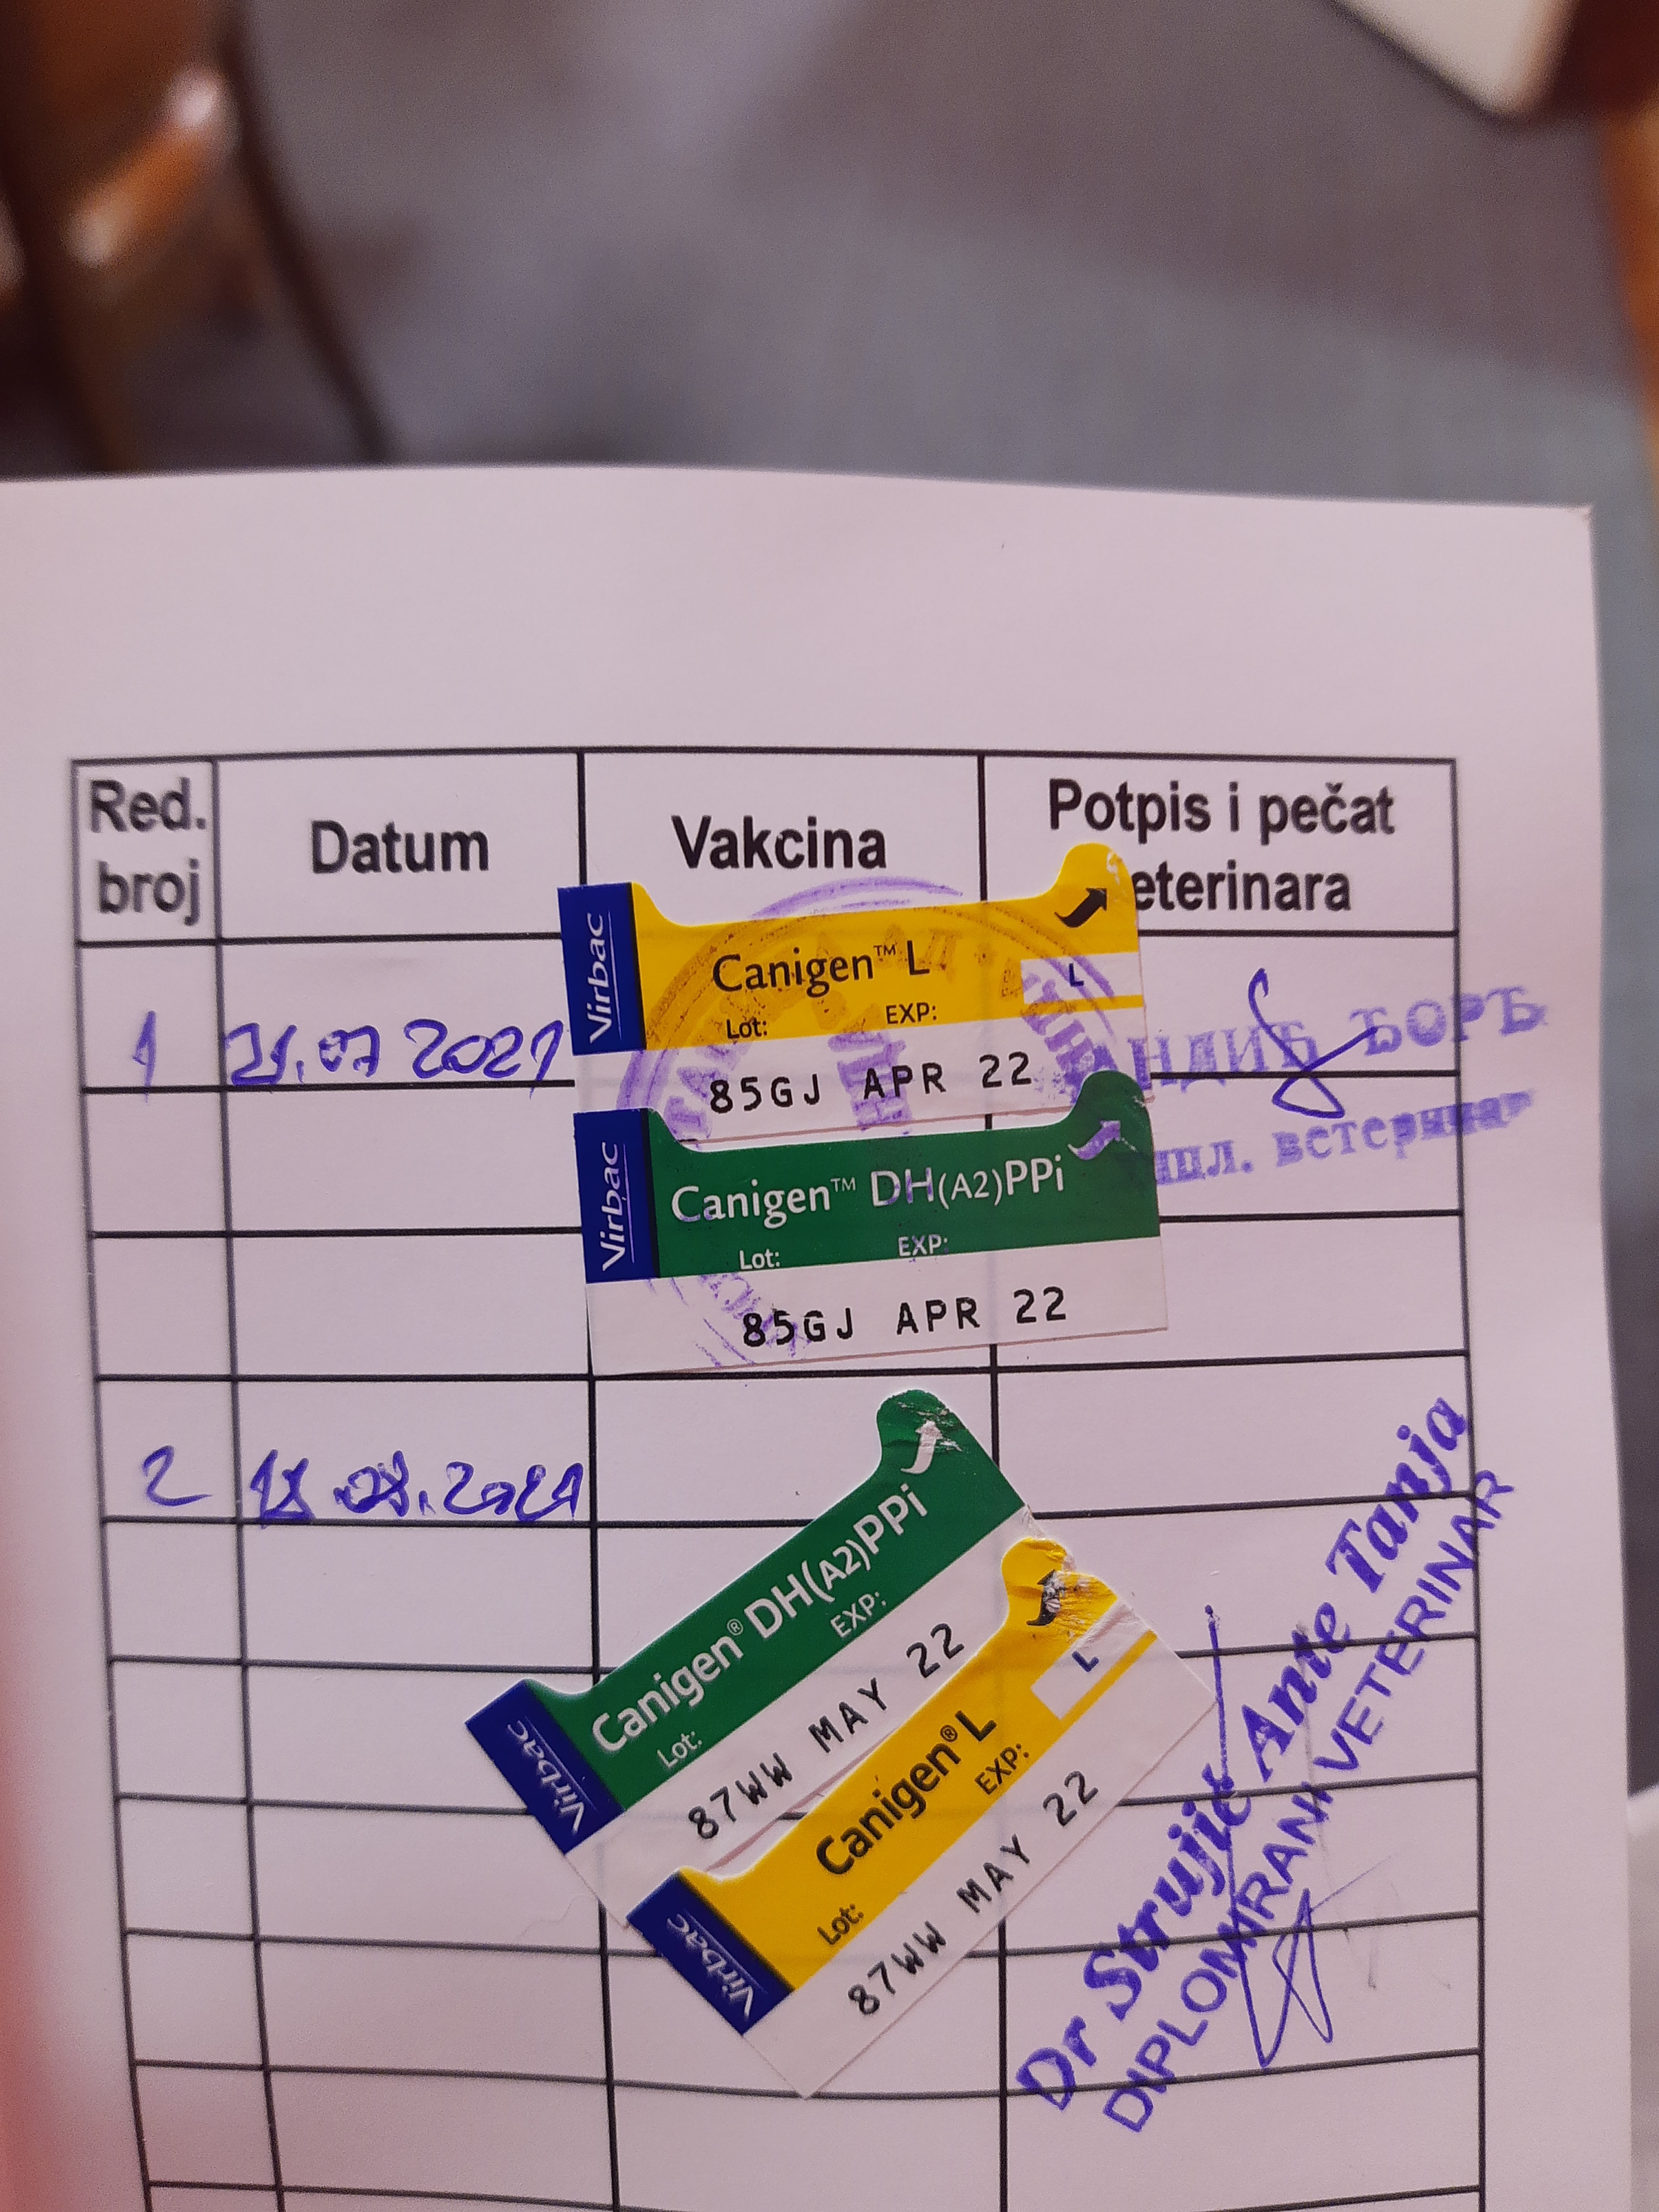 Red. broj
Datum
Vakcina
Potpis i pečat
eterinara
1
21.07 2021
Virbac
Canigen™ L
L
Lot:
EXP:
85GJ APR 22
АНДИЋ ЂОРЂ
ипл. ветеринар
Virbac
Canigen™ DH(A2)PPi
Lot:
EXP:
85GJ APR 22
2
18.08.2021
Virbac
Canigen® DH(A2)PPi
Lot:
EXP:
87WW MAY 22
Virbac
Canigen® L
L
Lot:
EXP:
87WW MAY 22
Dr Strujić Ante Tanja
DIPLOMIRANI VETERINAR